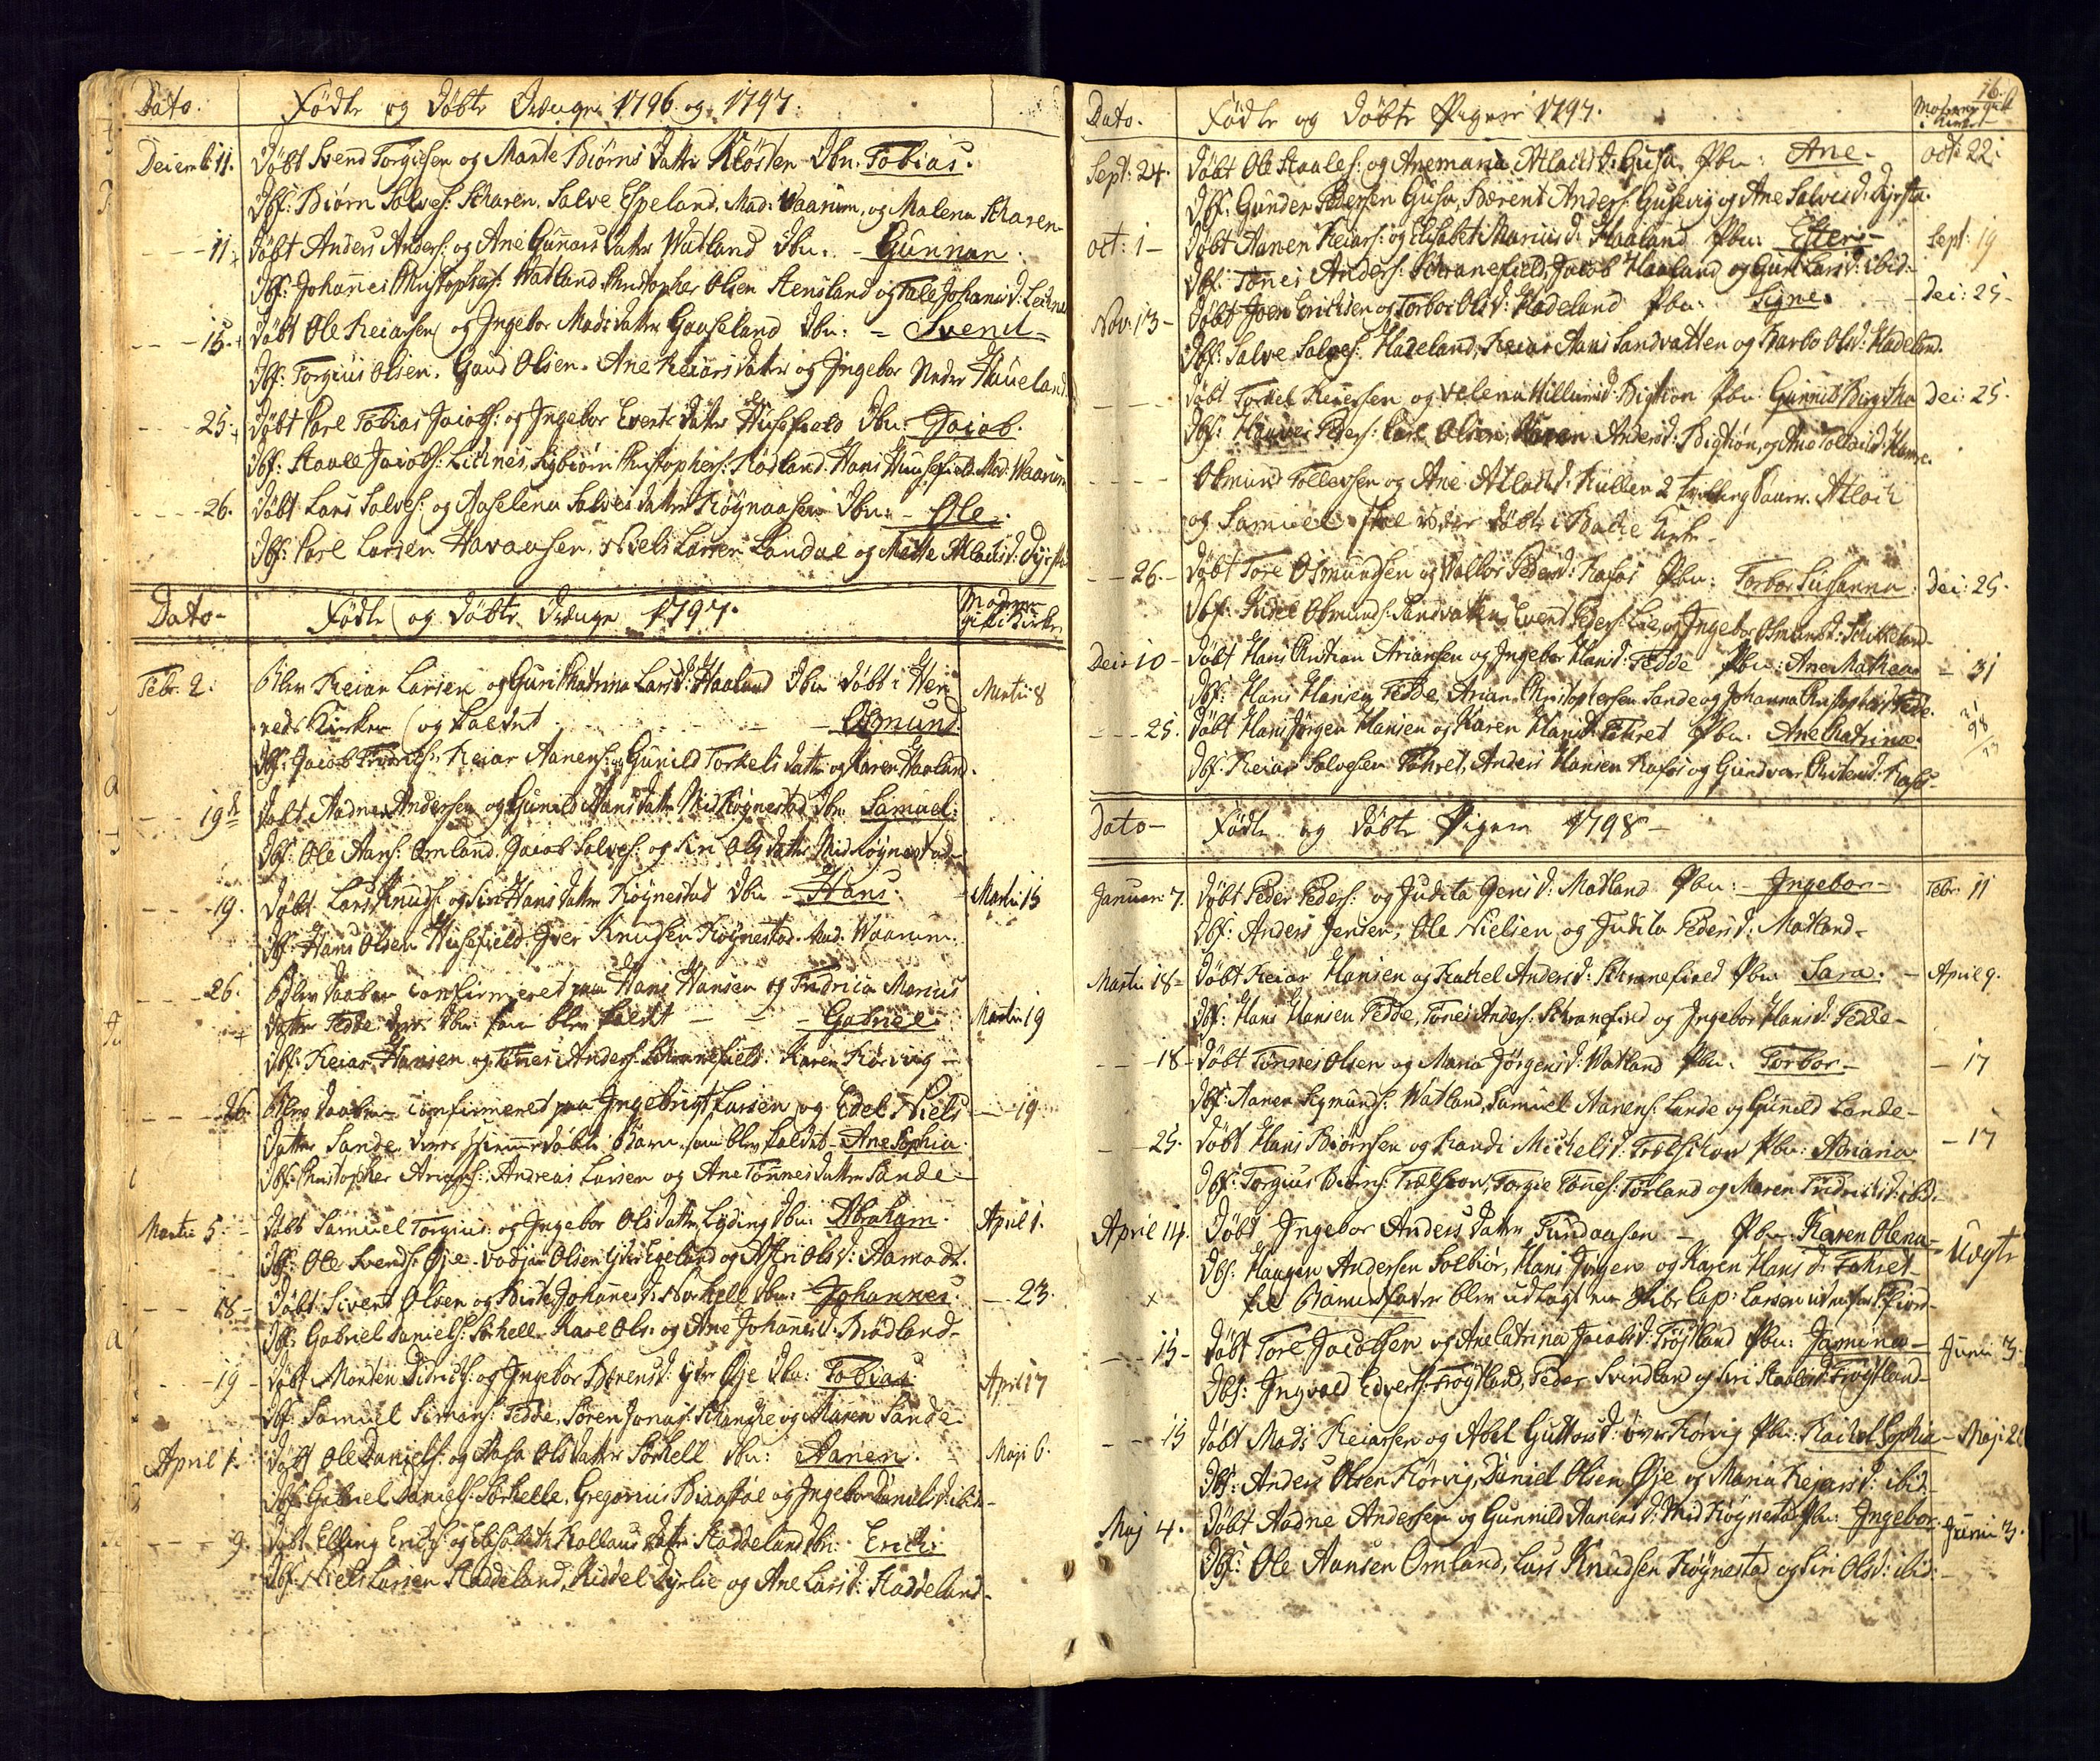 Dato. Fødte og døbte Drænge 1796 og 1797.
Decemb: 11. døbt Svend Torgiesen og Marte Biørns datter Kløsten Dbn: Tobias.
Dbf: Biørn Salves: Scharen, Salve Espeland, Mad: Waarum, og Malena Scharen
- - - 11 døbt Anders Anders: og Ane Gunars datter Watland Dbn: - Gunnar
Dbf: Johanes Christophers: Watland Christopher Olsen Stensland og Tale Johans d:
- - - 15. døbt Ole Reiarsen og Ingebor Mads datter Gauseland Dbn: - Svend -
Dbf: Torgius Olsen. Gaud Olsen. Ane Reiars datter og Ingebor Nedre Haueland
- - - 25. døbt Carl Tobias Jacobs: og Ingebor Everts datter Husefield Dbn: Jacob.
Dbf: Staale Jacobs: Lidnes, Sigbiørn Christophers: Rødland. Hans Husefield Mad: Waarum
- - - 26. døbt Lars Salves: og Aaselena Salves datter Røgnaasen Dbn: - Ole.
Dbf: Carl Larsen Havaasen, Niels Larsen Landal og Mette Atlaks d:
Dato - Fødte og døbte Drænge 1797. Modren gik i Kirke
Febr. 2. Blev Reiar Larsen og Guri Chatrina Lars d: Haaland Dbn døbt i Her Martii 8
reds Kirke og kaldet - - - Osmund
Dbf: Jacob Fridrichs: Reiar Aanens: og Gunild Torkels datter og Karen Haaland.
- - - 19de døbt Aadne Andersen og Gunild Hans datter Mid Røgnestad Dbn Samuel:
Dbf: Ole Aans: Omland. Jacob Salves: og Siri Ols datter Midrøgnestad
- - - 19. døbt Lars Knuds: og Siri Hans datter Røgnestad Dbn - Hans. - Martii 15
Dbf: Hans Olsen Husefield. Iver Knusen Røgnestad. Mad: Waarum.
- - - 26. Blev daaben confirmeret paa Hans Hansen og Fridrica Marius
datter Fedde deres Dbn som blev kaldet - - - Gabriel Martii 19
Dbf: Reiar Hansen og Tønnes Anders: Schranefield. Karen Rørvig -
- - - 26. Blev daaben confirmeret paa Ingebrigt Larsen og Edel Niels - - 19
datter Sande deres hiemmedøbte Barn som blev kaldet - Ane Sophia
Dbf: Christopher Arians: Andreas Larsen og Ane Tønnes datter Sande -
Martii 5. - døbt Samuel Torgius: og Ingebor Ols datter Lyding Dbn: Abraham. April 1.
Dbf: Ole Svends: Øye. Olsen Egeland og Astri Ols d: Aamodt.
- - 18 - døbt Sivert Olsen og Birte Johanes d: Norhell Dbn: Johannes. - - 23.
Dbf: Gabriel Daniels: Sørhell. Karl Ols: og Ane Johanes d: Brødland -
- - 19 - døbt Morten Didrichs: og Ingebor Bernts d: yttre Øye Dbn: Tobias. April 17
Dbf: Samuel Simons: Fedde, Søren Jonas: Schanche og Maren Sande.
April 1. døbt Ole Daniels: og Aasa Ols datter Sørhell Dbn: Aanen. - Maji 6.
Dbf: Gabriel Daniels: Sørhelle. Gregorius Braastøl og Ingebor Daniels d: ibid -
- - - 9. døbt Elling Erichs: og Elisabeth Rollaus datter Staddeland Dbn: Erich:
Dbf: Niels Larsen Staddeland, Riddel Dyrlie og Ane Lars d: Staddeland -
16.
Dato. Fødte og døbte Piger 1797. Moderen gik i Kirke
Sept: 24. døbt Ole Staales: og Anemaria Atlaks d: Gusa Pbn: Ane. oct: 22.
Dbf: Gunder Pedersen Gusa, Berent Anders: Gusevig og Ane Salves d: Dyrsta.
oct: 1 - døbt Aanen Reiars: og Elisabet Marius d: Haaland Pbn: Ester - Sept: 19
Dbf: Tønes Anders: Schranefield, Jacob Haaland og Guri Lars d: ibid -
Nov: 13 - døbt Joen Erichsen og Torbor Ols d: Hadeland Pbn: Signe. - Dec: 25 -
Dbf: Salve Salves: Hadeland, Reiar Aans Sandvatten og Barbo Ols d: Hadeland.
- - - døbt Torkel Reiersen og Velena Willums d: Bigtion Pbn: Gunnild Birgitha Dec: 25.
Dbf: Haaver Peders: Carl Olsen, Karen Anders d: Bigtion, og Ane Tollacs d:
- - - Osmund Tollevsen og Ane Atlacs d: Kullen 2 tvilling Sønner. Atlach
og Samuel, skal være døbte i Bache Kirke -
- - 26. - døbt Tore Osmundsen og Vallbor Peders d: Rafos Pbn: Torbor Susanna. Dec: 25.
Dbf: Riddel Osmunds: Sandvatten, Evend Peders: Lie og Ingebor Osmunds d: Schitteland -
Dec: 10 - døbt Hans Christian Ariansen og Ingebor Hans d: Fedde Pbn: Ane Mathea - 31
Dbf: Hans Hansen Fedde, Arian Christophersen Sande og Johanna Christophers d: Fedde.
- - - 25. døbt Hans Jørgen Hansen og Karen Hans d: Fahret Pbn: Ane Catrina.
Dbf: Reiar Salvesen Fahret, Anders Hansen Rafos og Gundvor Christens d: Rafos -
Dato - Fødte og døbte Piger 1798 -
Januar: 7. døbt Peder Peders: og Judita Gens d: Matland Pbn: - Ingebor - Febr: 11
Dbf: Anders Jensen, Ole Nielsen og Judita Peders d: Matland -
Martii 18 - døbt Reiar Hansen og Rachel Anders d: Schranefield Pbn Sara. - April 9.
Dbf: Hans Hansen Fedde, Tønes Anders: Schranefield og Ingebor Hans d: Fedde -
- - 18 - døbt Tønnes Olsen og Maria Jørgens d: Watland Pbn: Torbor - - 17
Dbf: Aanen Sigmunds: Watland, Samuel Aanens: Lande og Gunild Lande -
- 25. døbt Hans Biørnsen og Randi Michels d: Trælschow Pbn: Adriana - 17
Dbf: Torgius Biørns: Trælschow, Torgie Tønes: Torland og Maren Fridrichs d: ibid -
April 14. døbt Ingebor Anders datter Tundaasen - Pbn: Karen Olena - Uægte
Dbf: Haagen Andersen Solbiør, Hans Jørgen og Karen Hans d: Fahret -
x til Barnefader blev udlagt en Skibs Cap: Larsen
- - 15 - døbt Tore Jacobsen og Anecatrina Jacobs d: Frøytland Pbn: Jamina - Junii 3.
Dbf: Ingvald Edvarts: Frøytland, Peder Svindland og Siri Staales d: Frøytland -
- - 15 døbt Mads Reiarsen og Abel Guttorms d: øvre Rørvig Pbn: Rachel Sophia - Maji 2
Dbf: Anders Olsen Rørvig, Daniel Olsen Øye og Maria Rejars d: ibid -
Maj 4. døbt Aadne Andersen og Gunnild Aanens d: Mid Røgnestad Pbn: Ingebor - Junii 3.
Dbf: Ole Aansen Omland, Lars Knudsen Røgnestad og Siri Ols d: ibid: -